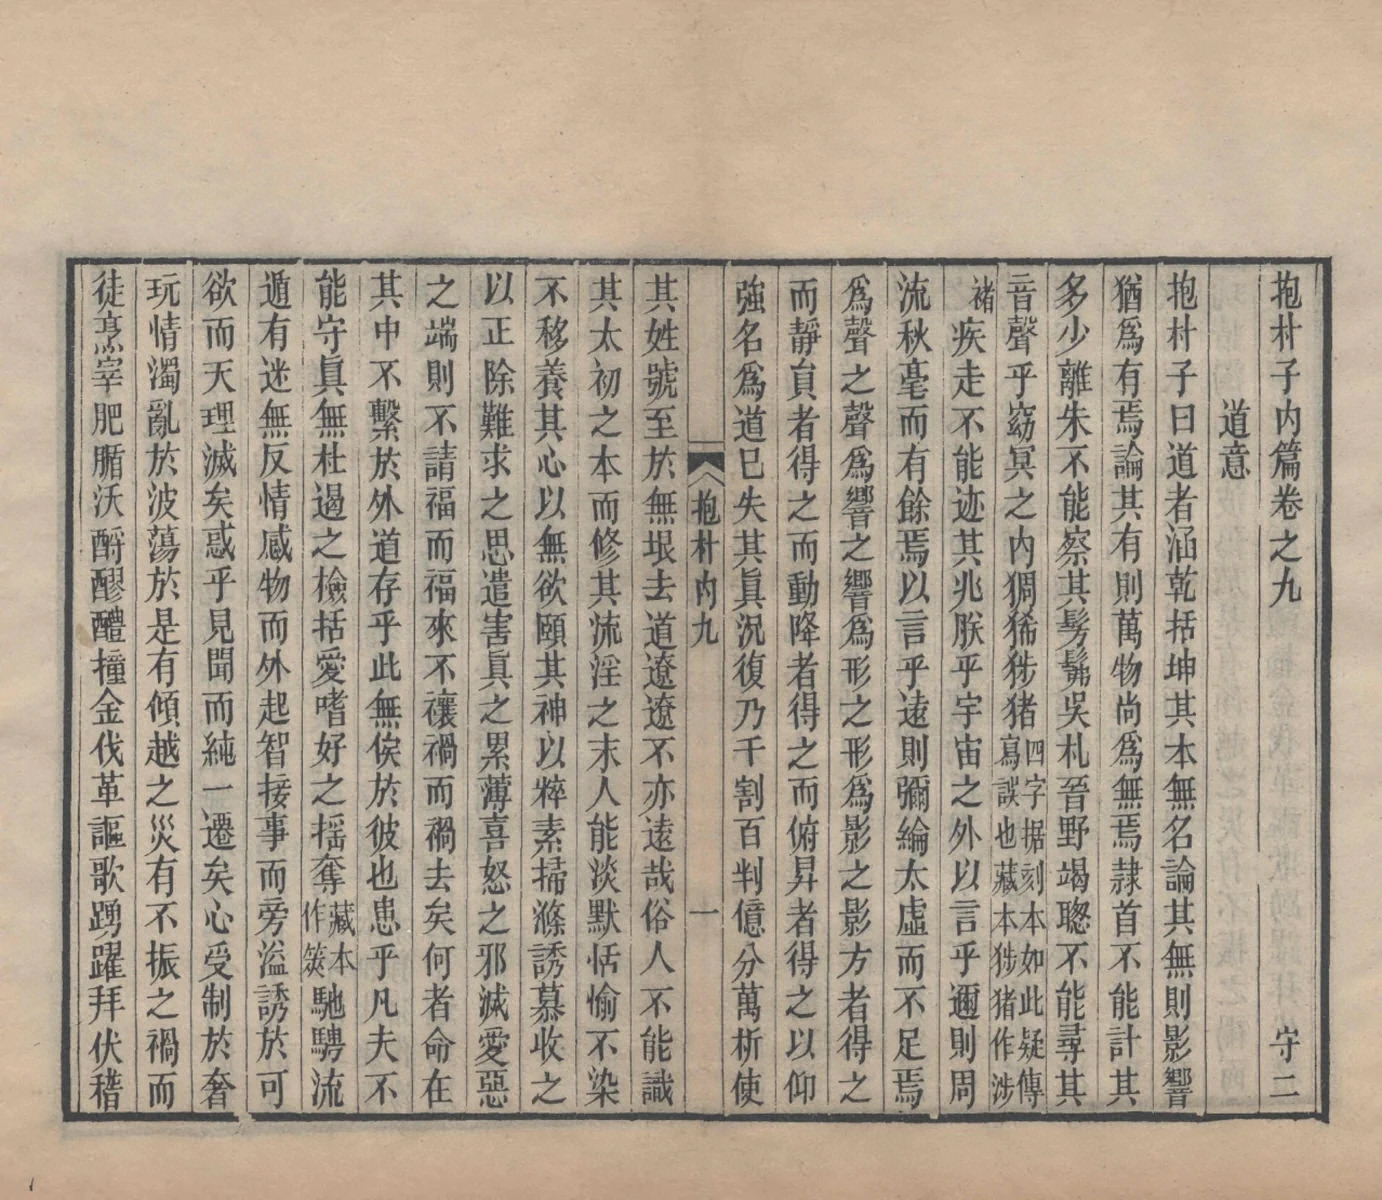 抱朴子内篇卷之九　守二
道意
抱朴子曰道者涵乾括坤其本無名論其無則影響
猶爲有焉論其有則萬物尚爲無焉隷首不能計其
多少離朱不能察其髣髴吳札晉野竭聰不能尋其
音聲乎窈冥之内猧狶猪四字据刻本如此疑傳寫誤也藏本猪作涉
褚疾走不能迹其兆朕乎宇宙之外以言乎邇則周
流秋毫而有餘焉以言乎遠則彌綸太虛而不足焉
爲聲之聲爲響之響爲形之形爲影之影方者得之
而靜員者得之而動降者得之而俯昇者得之以仰
強名爲道已失其眞況復乃千割百判億分萬析使
抱朴内九　一
其姓號至於無垠去道遼遼不亦遠哉俗人不能識
其太初之本而修其流淫之末人能淡默恬愉不染
不移養其心以無欲頤其神以粹素掃滌誘慕收之
以正除難求之思遣害眞之累薄喜怒之邪滅愛惡
之端則不請福而福來不禳禍而禍去矣何者命在
其中不繫於外道存乎此無俟於彼也患乎凡夫不
能守眞無杜遏之檢括愛嗜好之揺奪藏本作筴馳騁流
遁有迷無反情感物而外起智接事而旁溢誘於可
欲而天理滅矣惑乎見聞而純一遷矣心受制於奢
玩情濁亂於波蕩於是有傾越之災有不振之禍而
徒烹宰肥腯沃酹醪醴撞金伐革謳歌踴躍拜伏稽